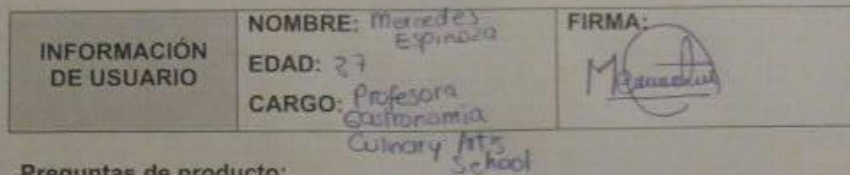 INFORMACIÓN
DE USUARIO
NOMBRE: Mercedes
Espinoza
EDAD: 37
CARGO: Profesora
Gastronomia
Culinary Arts
School
FIRMA:
Preguntas de producto: